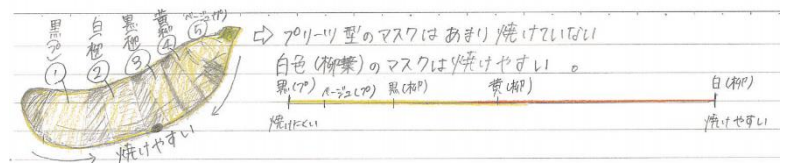 黒(プ)
白(柳)
黒(柳)
黄(柳)
ベージュ(プ)
① ② ③ ④ ⑤
⇨ プリーツ型のマスクはあまり焼けていない
白色(柳葉)のマスクは焼けやすい。
黒(プ) ベージュ(プ) 黒(柳) 黄(柳) 白(柳)
焼けにくい 焼けやすい
焼けやすい